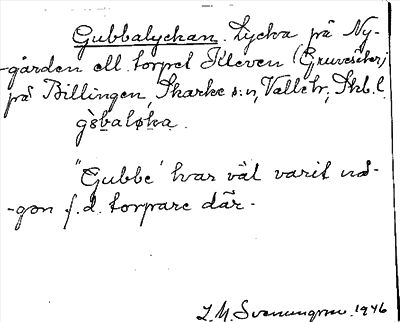 Gubbalyckan. Lycka på Ny-
-gården ell. torpet Kleven (Gruvsäter)
på Billingen, Skarke s:n, Valle hr, Skb. l.
gòbaløka.
"Gubbe" har väl varit nå-
-gon f.d. torpare där.
L. M. Svenungsson. 1946